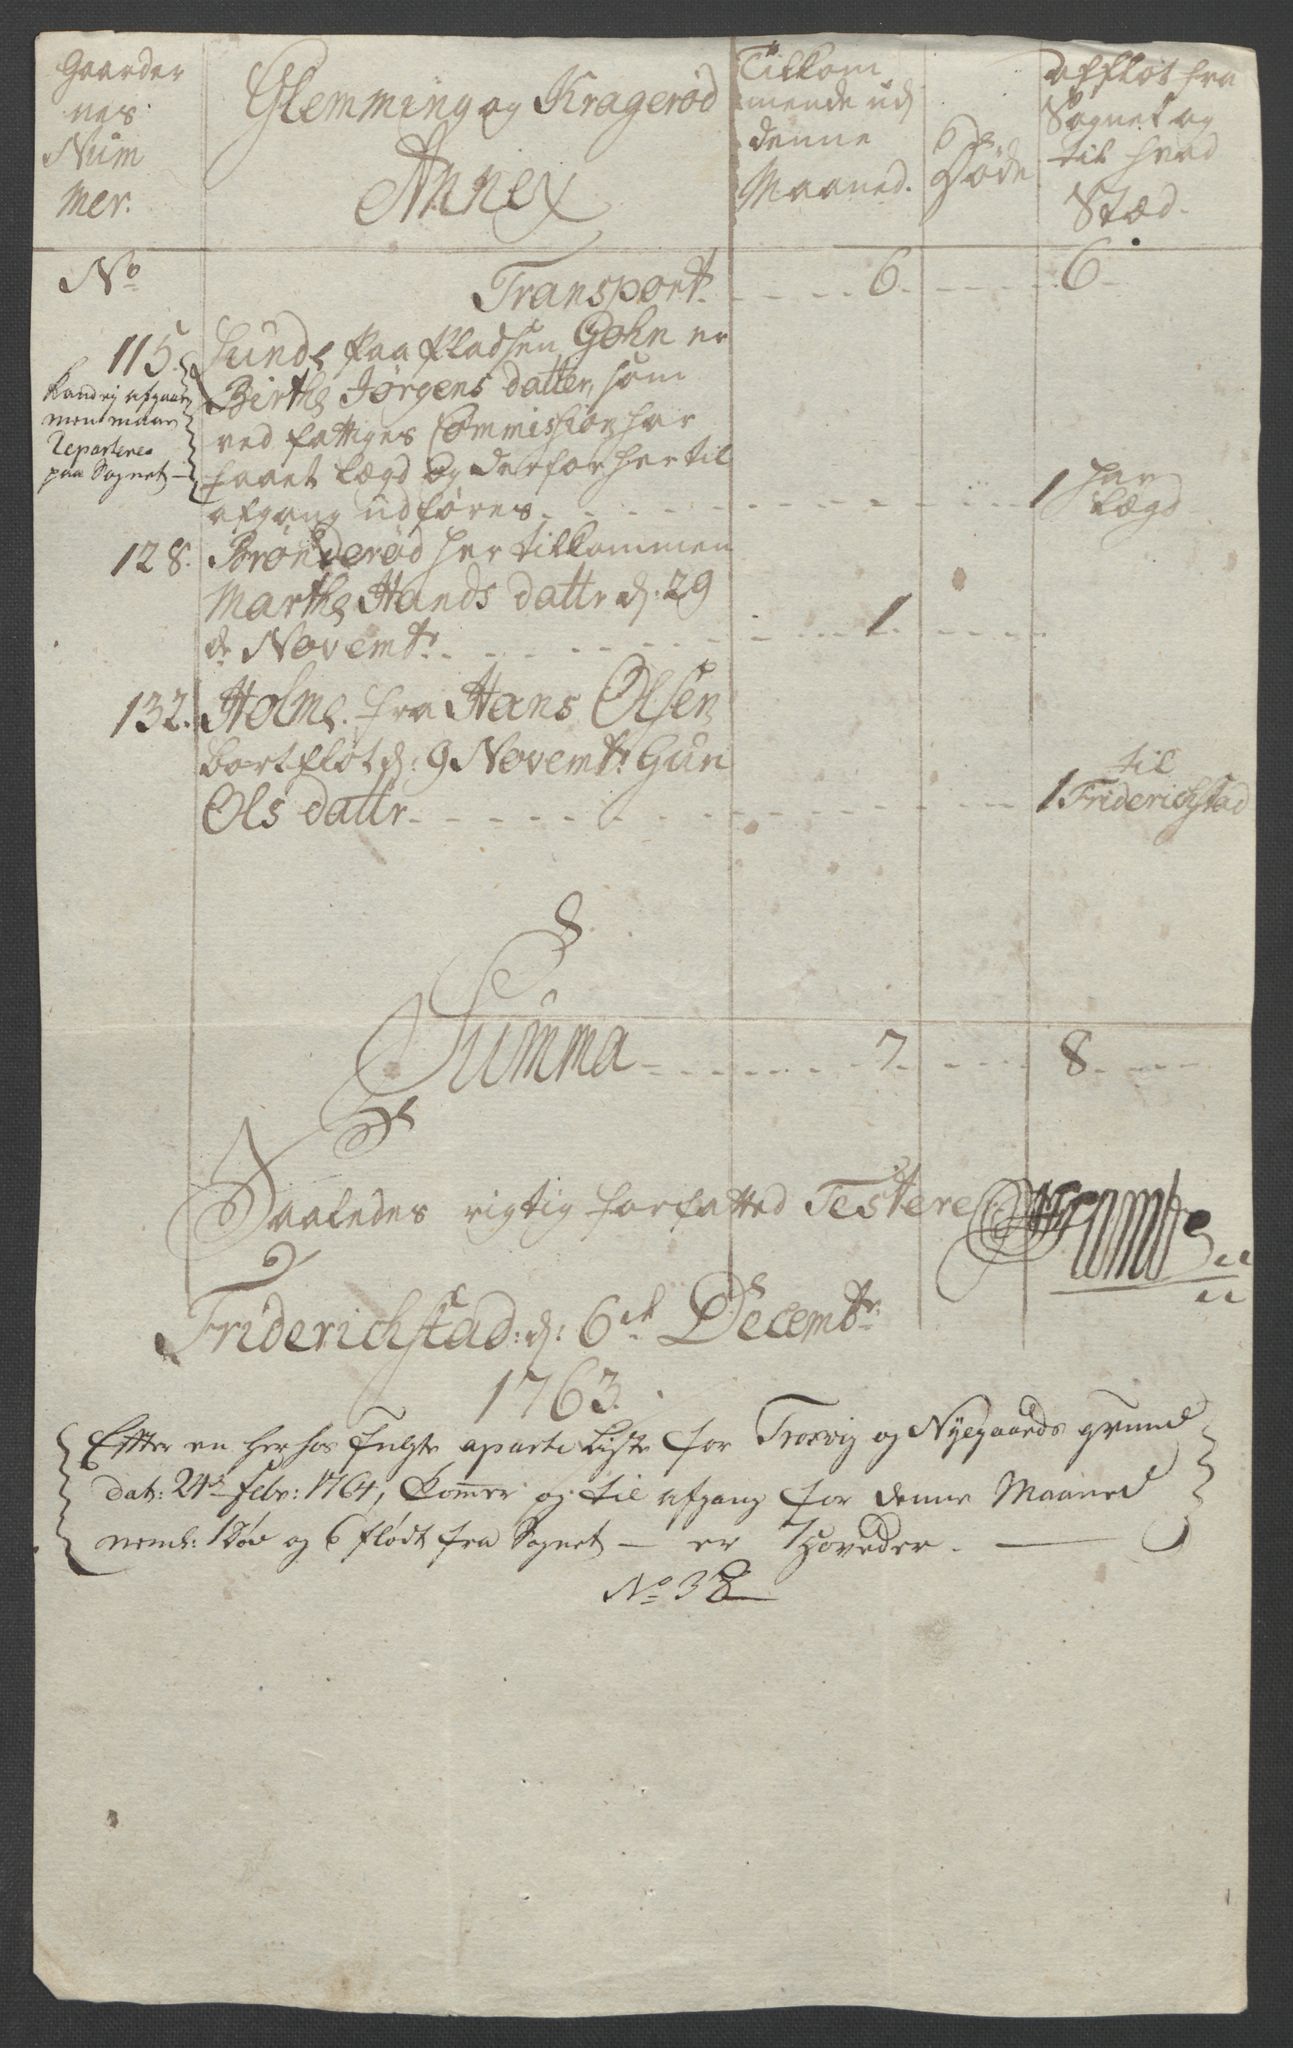 Gaarder
nes
Num
mer.
Glemming og Kragerød
Annex
Tilkom
mende ud
denne
Maaned.
Døde
affløt fra
Sognet og
til hvad
Stæd.
No
Transport 6. 6
115. Lunde paa Pladsen Gohn er
Birthe Jørgens datter, som
ved fattiges Commission har
faaet Lægd og derfor her til
afgang udføres. 1 har Lægd
Kand ej afgaar
men maae
Reparteres
paa Sognet
128. Brønderød her tilkommen
Marthe Hands dattr d: 29
de Novembr. 1
132. Holme. fra Hans Olsen
bortfløt d: 9 Novembr: Gun
Ols dattr. 1 til Friderichstad
Summa 7. 8.
Saaledes rigtig forfatted Testere
Friderichstad: d: 6te Decembr:
1763.
Effter en herhos fulgte aparte Liste for Trosvig og Nyegaards grund
dat: 24de Febr: 1764, kommer og til afgang for denne Maaned
neml: 1 Død og 6 flødt fra Sognet — er 7 Hoveder. —
No 38